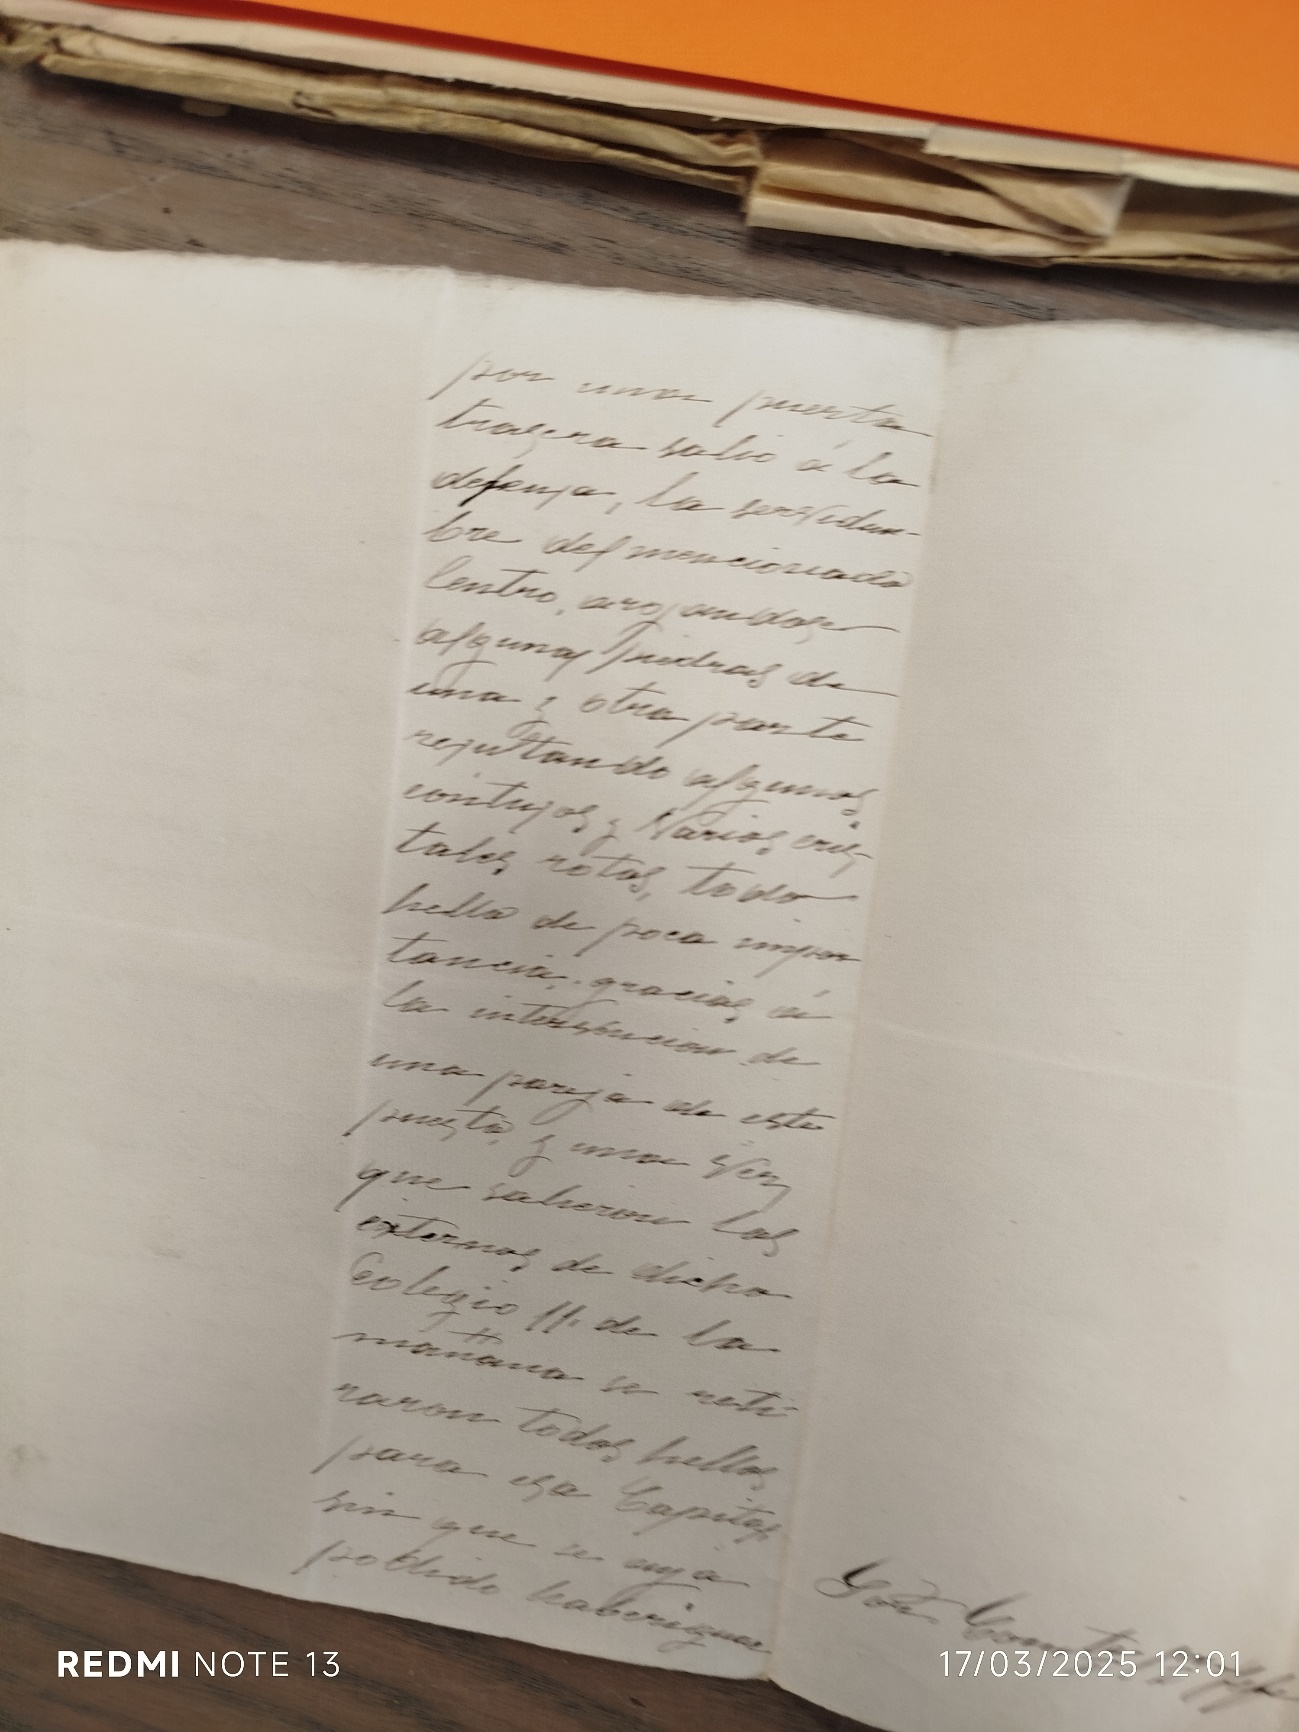 por una puerta
trasera salio á la
defensa, la servidum-
bre del mencionado
Centro, arojandose
algunas piedras de
una y otra parte
resultando algunos
contusos y varios cris-
tales rotos, todo
hello de poca impor
tancia, gracias á
la intervencion de
una pareja de este
puesto, y una vez
que salieron los
externos de dicho
Colegio 11. de la
mañana se reti-
raron todos hellos
para esa Capital
sin que se aya
podido haberiguar
REDMI NOTE 13
17/03/2025 12:01